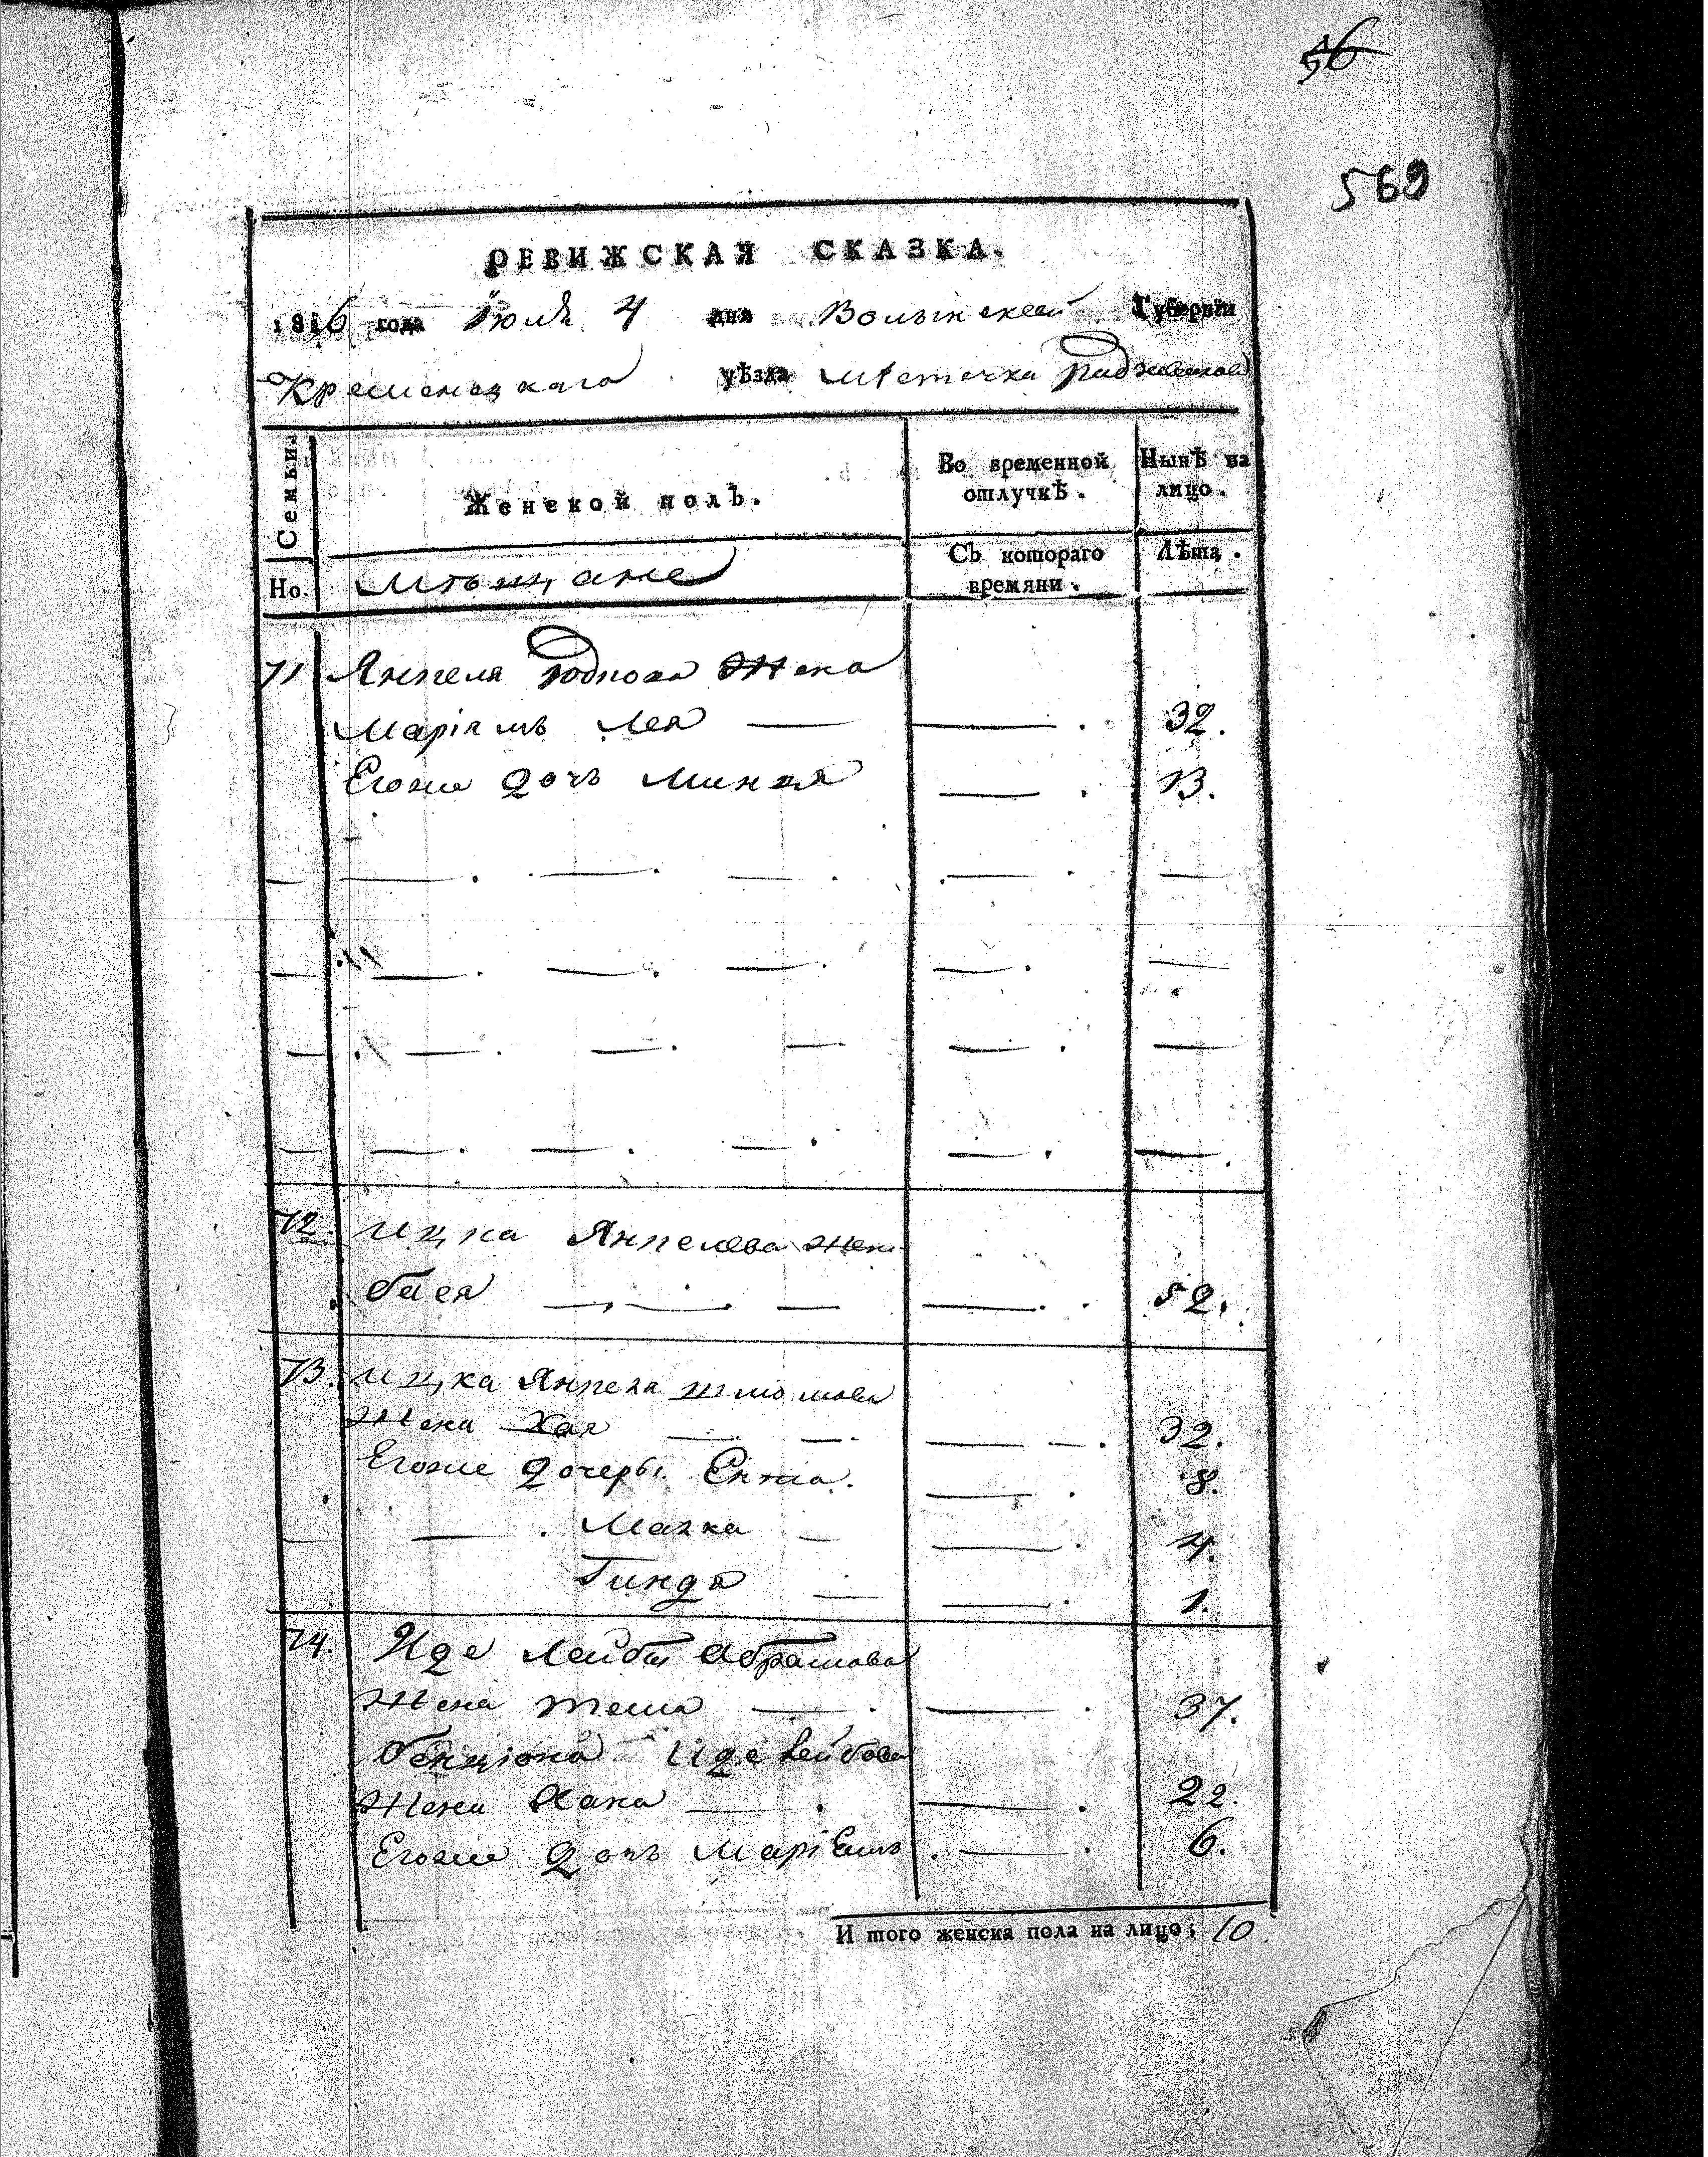 56
569
РЕВИЖСКАЯ СКАЗКА.
1816 года Июля 4 дня Волынской Губерніи
Кременецкаго уѣзда мѣстечка Радзивилова
Семьи.
Женской полъ.
Во временной отлучкѣ.
Нынѣ на лицо.
Но.
мѣщане
Съ котораго времяни.
Лѣта.
71 Янкеля Жена
Маріямъ Лея — — 32.
Егоже дочъ Минця — 13.
72. Ицка Янкелева жена
бася — — 52.
73. Ицка Янкеля шлiомова
Жена Хая — — 32.
Егоже дочеры Ентa. — 8.
— Малка — — 4.
Гиндя — — 1.
74. Иде Лейбы Абрамова
Жена — — 37.
бенціона Иде Лейбова
Жена Хана — — 22.
Егоже дочъ МаріЕмъ — 6.
И того женска пола на лицо: 10.